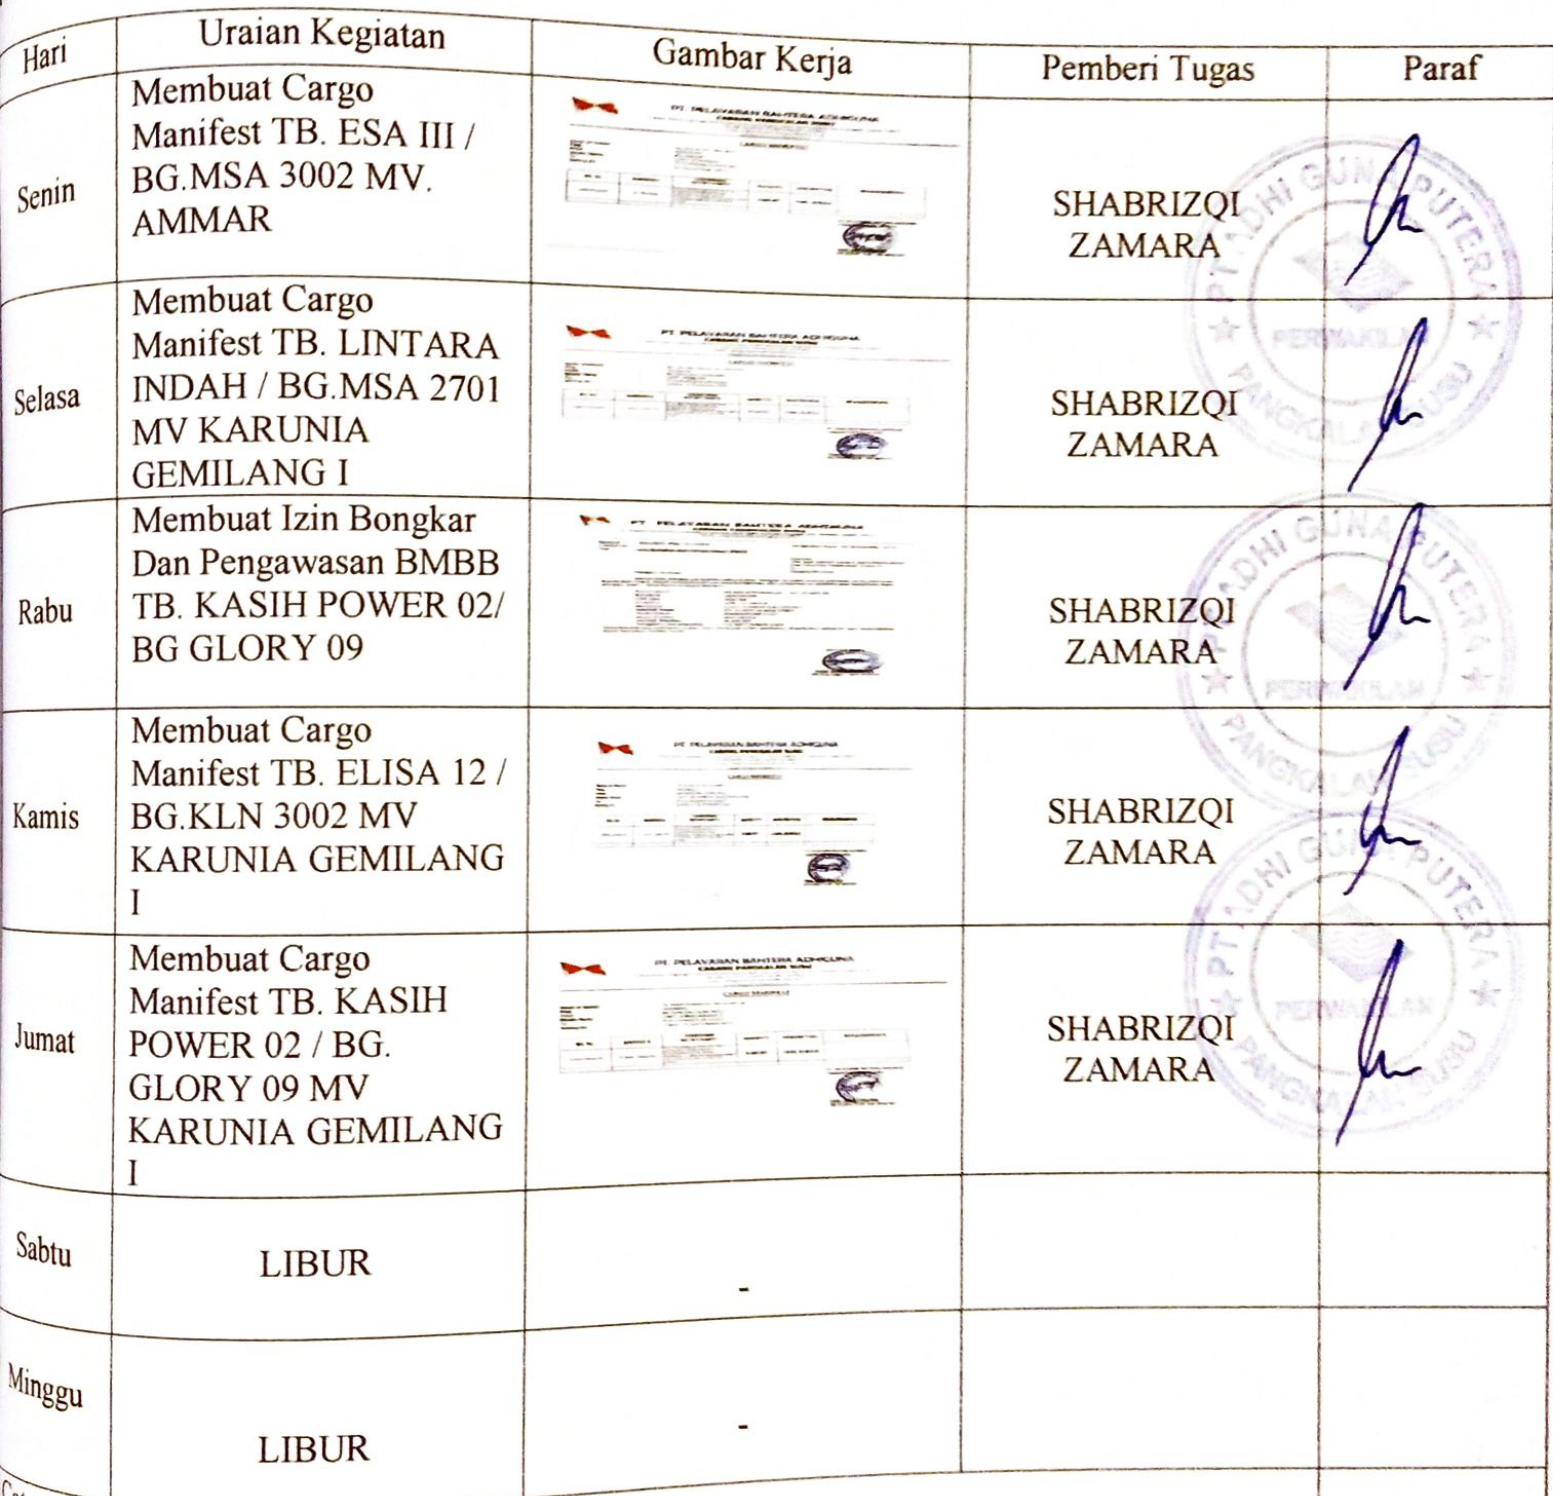 Hari
Uraian Kegiatan
Gambar Kerja
Pemberi Tugas
Paraf
Senin
Membuat Cargo
Manifest TB. ESA III /
BG.MSA 3002 MV.
AMMAR
PT. PELAYARAN BAHTERA ADHIGUNA
CABANG PANGKALAN SUSU
CARGO MANIFEST
SHABRIZQI
ZAMARA
PT ADHI GUNA PUTERA
PERWAKILAN
PANGKALAN SUSU
Selasa
Membuat Cargo
Manifest TB. LINTARA
INDAH / BG.MSA 2701
MV KARUNIA
GEMILANG I
PT. PELAYARAN BAHTERA ADHIGUNA
CABANG PANGKALAN SUSU
SHABRIZQI
ZAMARA
Rabu
Membuat Izin Bongkar
Dan Pengawasan BMBB
TB. KASIH POWER 02/
BG GLORY 09
PT. PELAYARAN BAHTERA ADHIGUNA
SHABRIZQI
ZAMARA
PT ADHI GUNA PUTERA
PERWAKILAN
PANGKALAN SUSU
Kamis
Membuat Cargo
Manifest TB. ELISA 12 /
BG.KLN 3002 MV
KARUNIA GEMILANG
I
PT. PELAYARAN BAHTERA ADHIGUNA
CABANG PANGKALAN SUSU
SHABRIZQI
ZAMARA
PT ADHI GUNA PUTERA
PERWAKILAN
PANGKALAN SUSU
Jumat
Membuat Cargo
Manifest TB. KASIH
POWER 02 / BG.
GLORY 09 MV
KARUNIA GEMILANG
I
PT. PELAYARAN BAHTERA ADHIGUNA
CABANG PANGKALAN SUSU
CARGO MANIFEST
SHABRIZQI
ZAMARA
Sabtu
LIBUR
-
Minggu
LIBUR
-